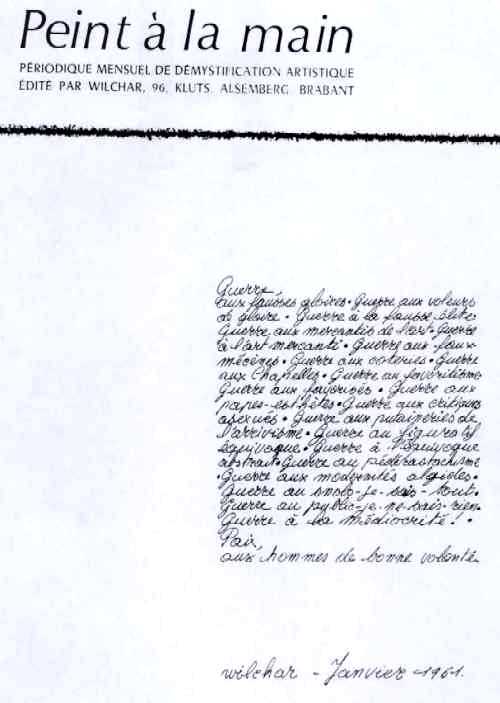 Peint à la main
PÉRIODIQUE MENSUEL DE DÉMYSTIFICATION ARTISTIQUE
ÉDITÉ PAR WILCHAR, 96, KLUTS, ALSEMBERG, BRABANT
Guerre
aux fausses gloires • Guerre aux voleurs
de gloire • Guerre à la fausse élite
Guerre aux mercantis de l'art • Guerre
à l'art mercanti • Guerre aux faux
mécènes • Guerre aux coteries • Guerre
aux Chapelles • Guerre au favoritisme
Guerre aux favorisés • Guerre aux
papes-esthètes • Guerre aux critiques
asexués • Guerre aux putaineries de
l'arrivisme • Guerre au figuratif
équivoque • Guerre à l'équivoque
abstrait • Guerre au
• Guerre aux modernités
Guerre au snob-je-sais-tout •
Guerre au public-je-ne-sais-rien
Guerre à la médiocrité ! •
Paix,
aux hommes de bonne volonté
wilchar - Janvier -1961.